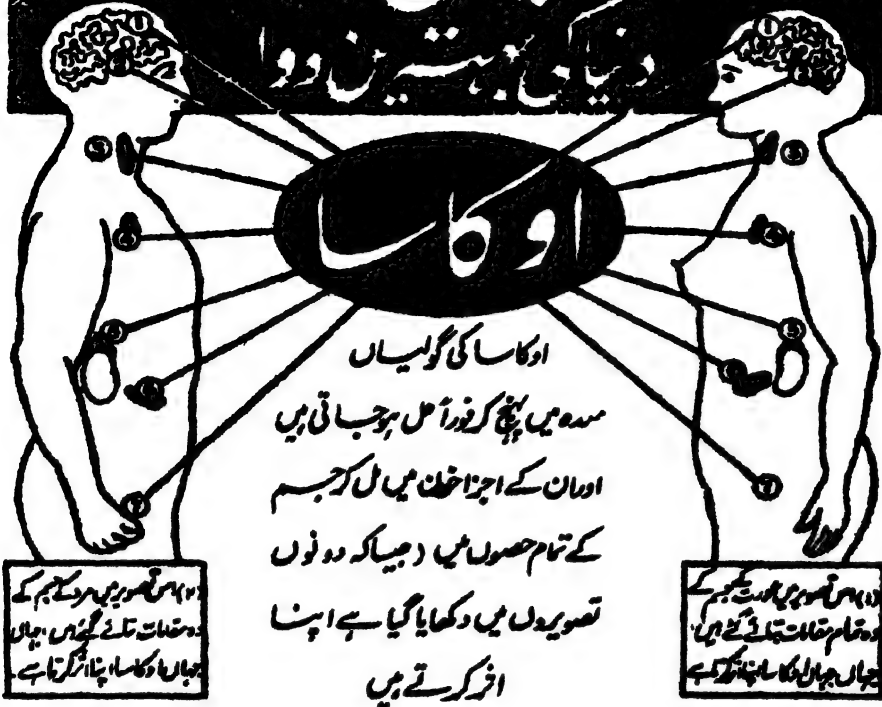 دنیا کی بہترین دوا
اوکاسا
اوکاسا کی گولیاں
معدہ میں پہنچ کر فوراً حل ہو جاتی ہیں
اور ان کے اجزا خون میں مل کر جسم
کے تمام حصوں میں (جیسا کہ دونوں
تصویروں میں دکھایا گیا ہے اپنا
اثر کرتے ہیں
(۱) اس تصویر میں عورت کے جسم کے
وہ تمام مقامات بتائے گئے ہیں
جہاں جہاں اوکاسا اپنا اثر کرتا ہے
(۲) اس تصویر میں مرد کے جسم کے
وہ مقامات بتائے گئے ہیں، جہاں
جہاں اوکاسا اپنا اثر کرتا ہے۔